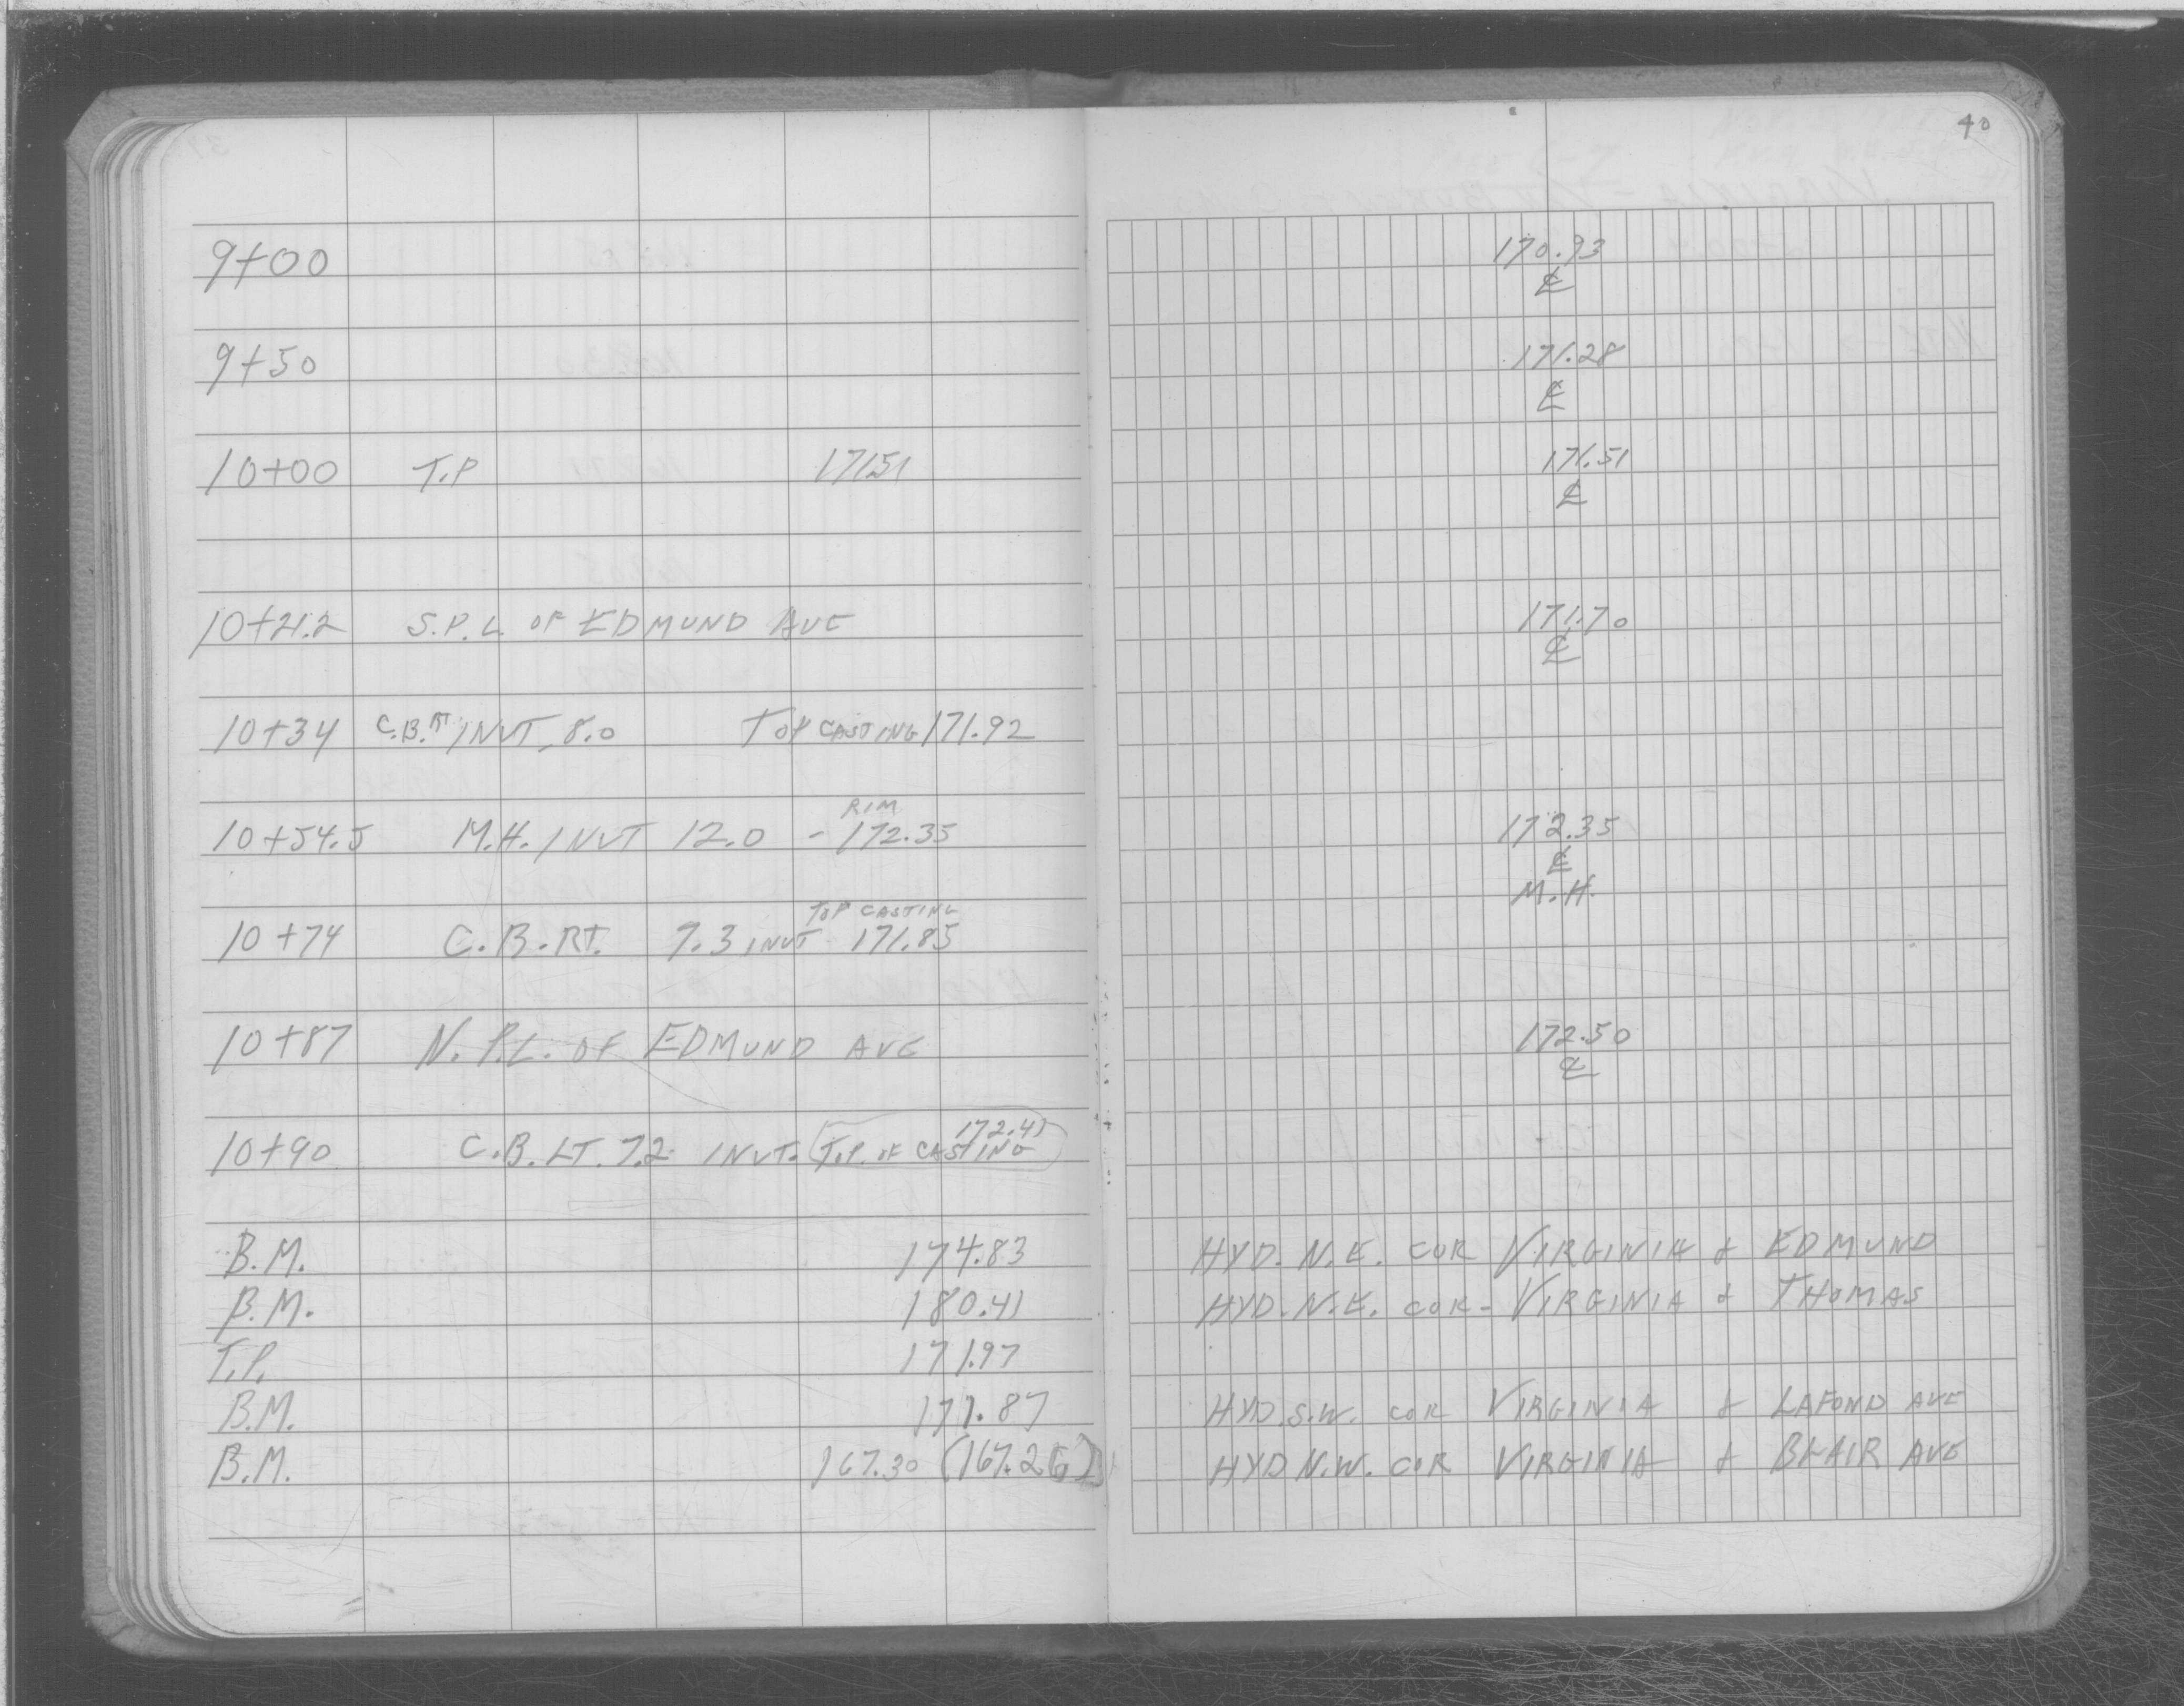 40
9+00 170.93
℄
9+50 171.28
℄
10+00 T.P 171.51 171.51
℄
10+21.2 S.P.L. OF EDMUND AVE 171.70
℄
10+34 C.B. RT INVT. 8.0 TOP CASTING 171.92
RIM
10+54.5 M.H. INVT 12.0 - 172.35 172.35
℄
M.H.
TOP CASTING
10+74 C.B. RT. 7.3 INVT 171.85
10+87 N.P.L. OF EDMUND AVE 172.50
℄
172.41
10+90 C.B. LT. 7.2 INVT. T.P. OF CASTING
B.M. 174.83 HYD. N.E. COR VIRGINIA & EDMUND
B.M. 180.41 HYD. N.E. COR- VIRGINIA & THOMAS
T.P. 171.97
B.M. 177.87 HYD. S.W. COR VIRGINIA & LAFOND AVE
B.M. 167.30 (167.26) HYD N.W. COR VIRGINIA & BLAIR AVE